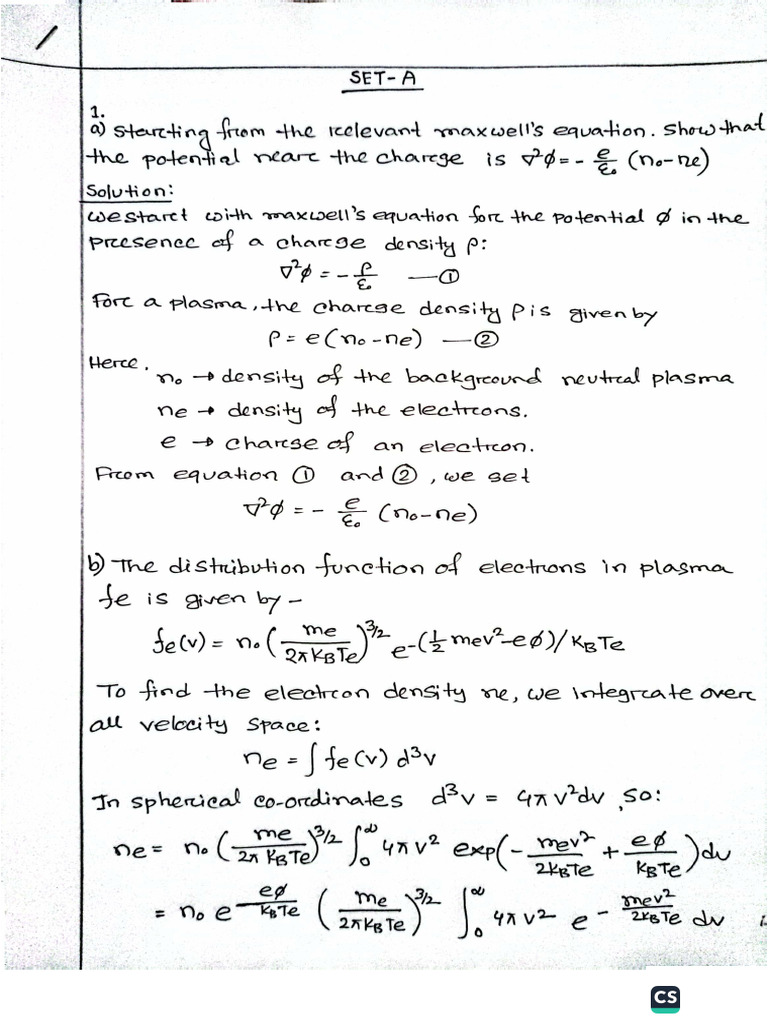 SET-A
1.
a) Starting from the relevant maxwell's equation. Show that
the potential near the charge is ∇²φ = - e/ε₀ (n₀-ne)
Solution:
We start with maxwell's equation for the potential φ in the
presence of a charge density ρ:
∇²φ = - ρ/ε₀ —①
For a plasma, the charge density ρ is given by
ρ = e(n₀-ne) —②
Here,
n₀ → density of the background neutral plasma
ne → density of the electrons.
e → charge of an electron.
From equation ① and ②, we get
∇²φ = - e/ε₀ (n₀-ne)
b) The distribution function of electrons in plasma
fe is given by -
fe(v) = n₀ (me/2πKBTe)^3/2 e^-(½mev²-eφ)/KBTe
To find the electron density ne, we integrate over
all velocity space:
ne = ∫ fe(v) d³v
In spherical co-ordinates d³v = 4πv²dv, so:
ne = n₀ (me/2πKBTe)^3/2 ∫₀^∞ 4πv² exp(- mev²/2KBTe + eφ/KBTe) dv
= n₀ e^eφ/KBTe (me/2πKBTe)^3/2 ∫₀^∞ 4πv² e^- mev²/2KBTe dv
CS